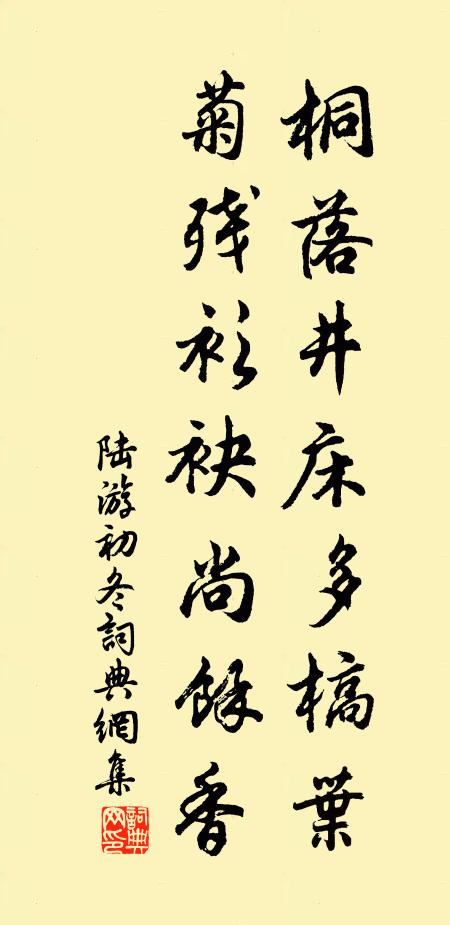 桐落井床多槁葉
菊残衫袂尚餘香
陆游初冬詞典網集
詞典網印